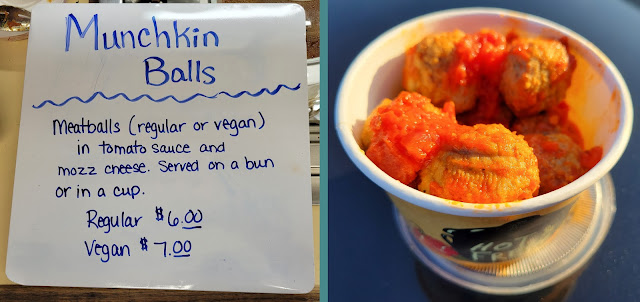 Munchkin
Balls
Meatballs (regular or vegan)
in tomato sauce and
mozz cheese. Served on a bun
or in a cup.
Regular $6.00
Vegan $7.00
HOT
FR